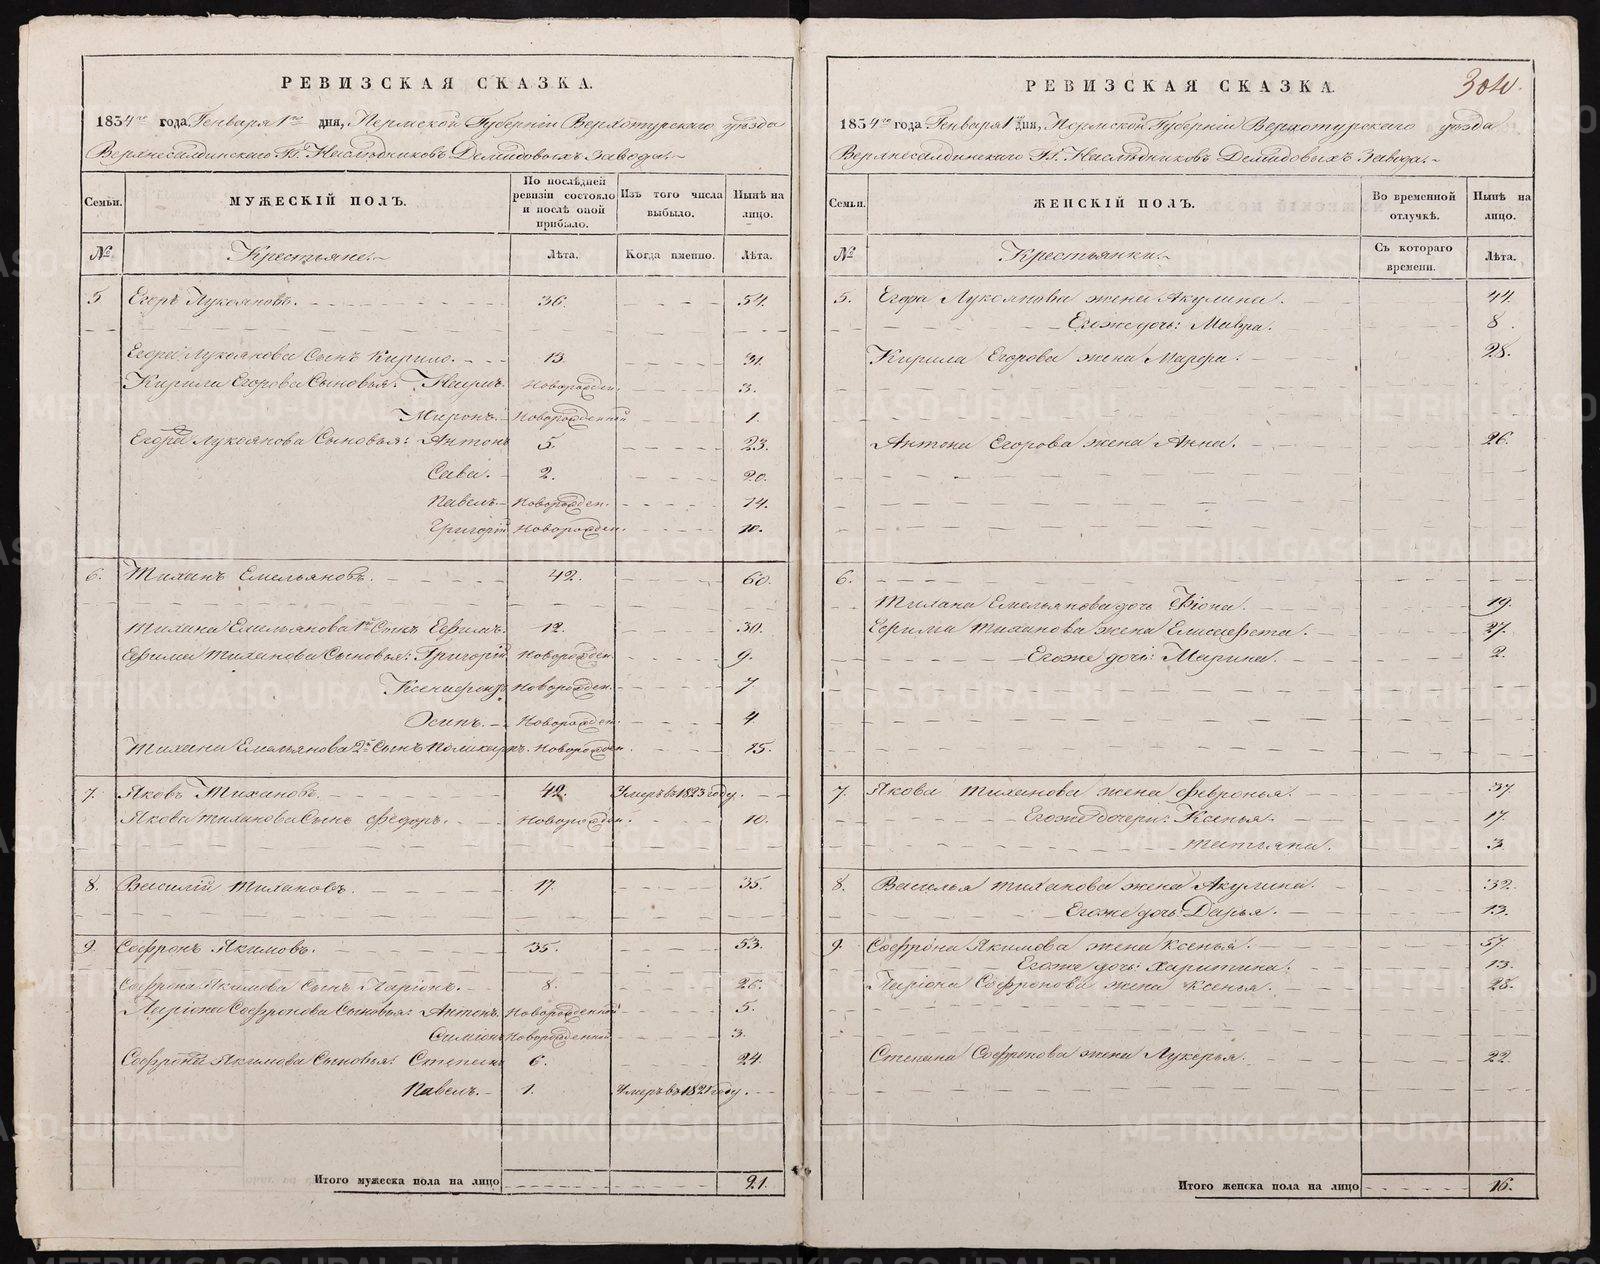 РЕВИЗСКАЯ СКАЗКА.
1834го года Генваря 1го дня, Пермской Губерніи Верхотурскаго уѣзда
Верхнесалдинскаго Гг. Наслѣдниковъ Демидовыхъ Завода.
Семьи. МУЖЕСКІЙ ПОЛЪ. По послѣдней ревизіи состояло и послѣ оной прибыло. Изъ того числа выбыло. Нынѣ на лицо.
№ Крестьяне. Лѣта. Когда именно. Лѣта.
5 Егоръ Лукояновъ. 36. 54.
Егора Лукоянова Сынъ Кирило. 13. 31.
Кирила Егорова Сыновья: Наумъ. Новорожден. 3.
Миронъ. Новорожденной 1.
Егора Лукоянова Сыновья: Антонъ 5. 23.
Сава. 2. 20.
Павелъ Новорожден. 14.
Григорій Новорожден. 10.
6. Тиханъ Емельяновъ. 42. 60.
Тихана Емельянова 1й Сынъ Ефимъ. 12. 30.
Ефима Тиханова Сыновья: Григорій Новорожден. 9.
Ксенифонтъ Новорожден. 7
Осипъ. Новорожден. 4
Тихана Емельянова 2й Сынъ Поликарпъ. Новорожден. 15.
7. Яковъ Тихановъ. 42. Умеръ въ 1823 году.
Якова Тиханова Сынъ Федоръ. Новорожден. 10.
8. Василій Тихановъ. 17. 35.
9 Софронъ Якимовъ. 35. 53.
Софрона Якимова Сынъ Ларіонъ. 8. 26.
Ларіона Софронова Сыновья: Антонъ. Новорожденной 5.
Симіонъ Новорожденной 3.
Софрона Якимова Сыновья: Степанъ 6. 24.
Павелъ. 1. Умеръ въ 1821 году.
Итого мужеска пола на лицо 21.
РЕВИЗСКАЯ СКАЗКА.
1834го года Генваря 1го дня, Пермской Губерніи Верхотурскаго уѣзда
Верхнесалдинскаго Гг. Наслѣдниковъ Демидовыхъ Завода.
Семьи. ЖЕНСКІЙ ПОЛЪ. Во временной отлучкѣ. Нынѣ на лицо.
№ Крестьянки. Съ котораго времени. Лѣта.
5. Егора Лукоянова жена Акулина. 44.
Его же дочь: Мавра. 8.
Кирила Егорова жена Марфа. 28.
Антона Егорова жена Анна. 26.
6.
Тихана Емельянова дочь Фіона. 19.
Ефима Тиханова жена Елисавета. 27.
Его же дочь: Марина. 2.
7 Якова Тиханова жена Февронья. 37.
Его же дочери: Ксенья. 17.
Татьяна. 3
8. Василья Тиханова жена Акулина. 32.
Его же дочь: Дарья. 13.
9 Софрона Якимова жена Ксенья. 57
Его же дочь: Харитина. 13.
Ларіона Софронова жена Ксенья. 28.
Степана Софронова жена Лукерья. 22.
Итого женска пола на лицо 16.
METRIKI.GASO-URAL.RU